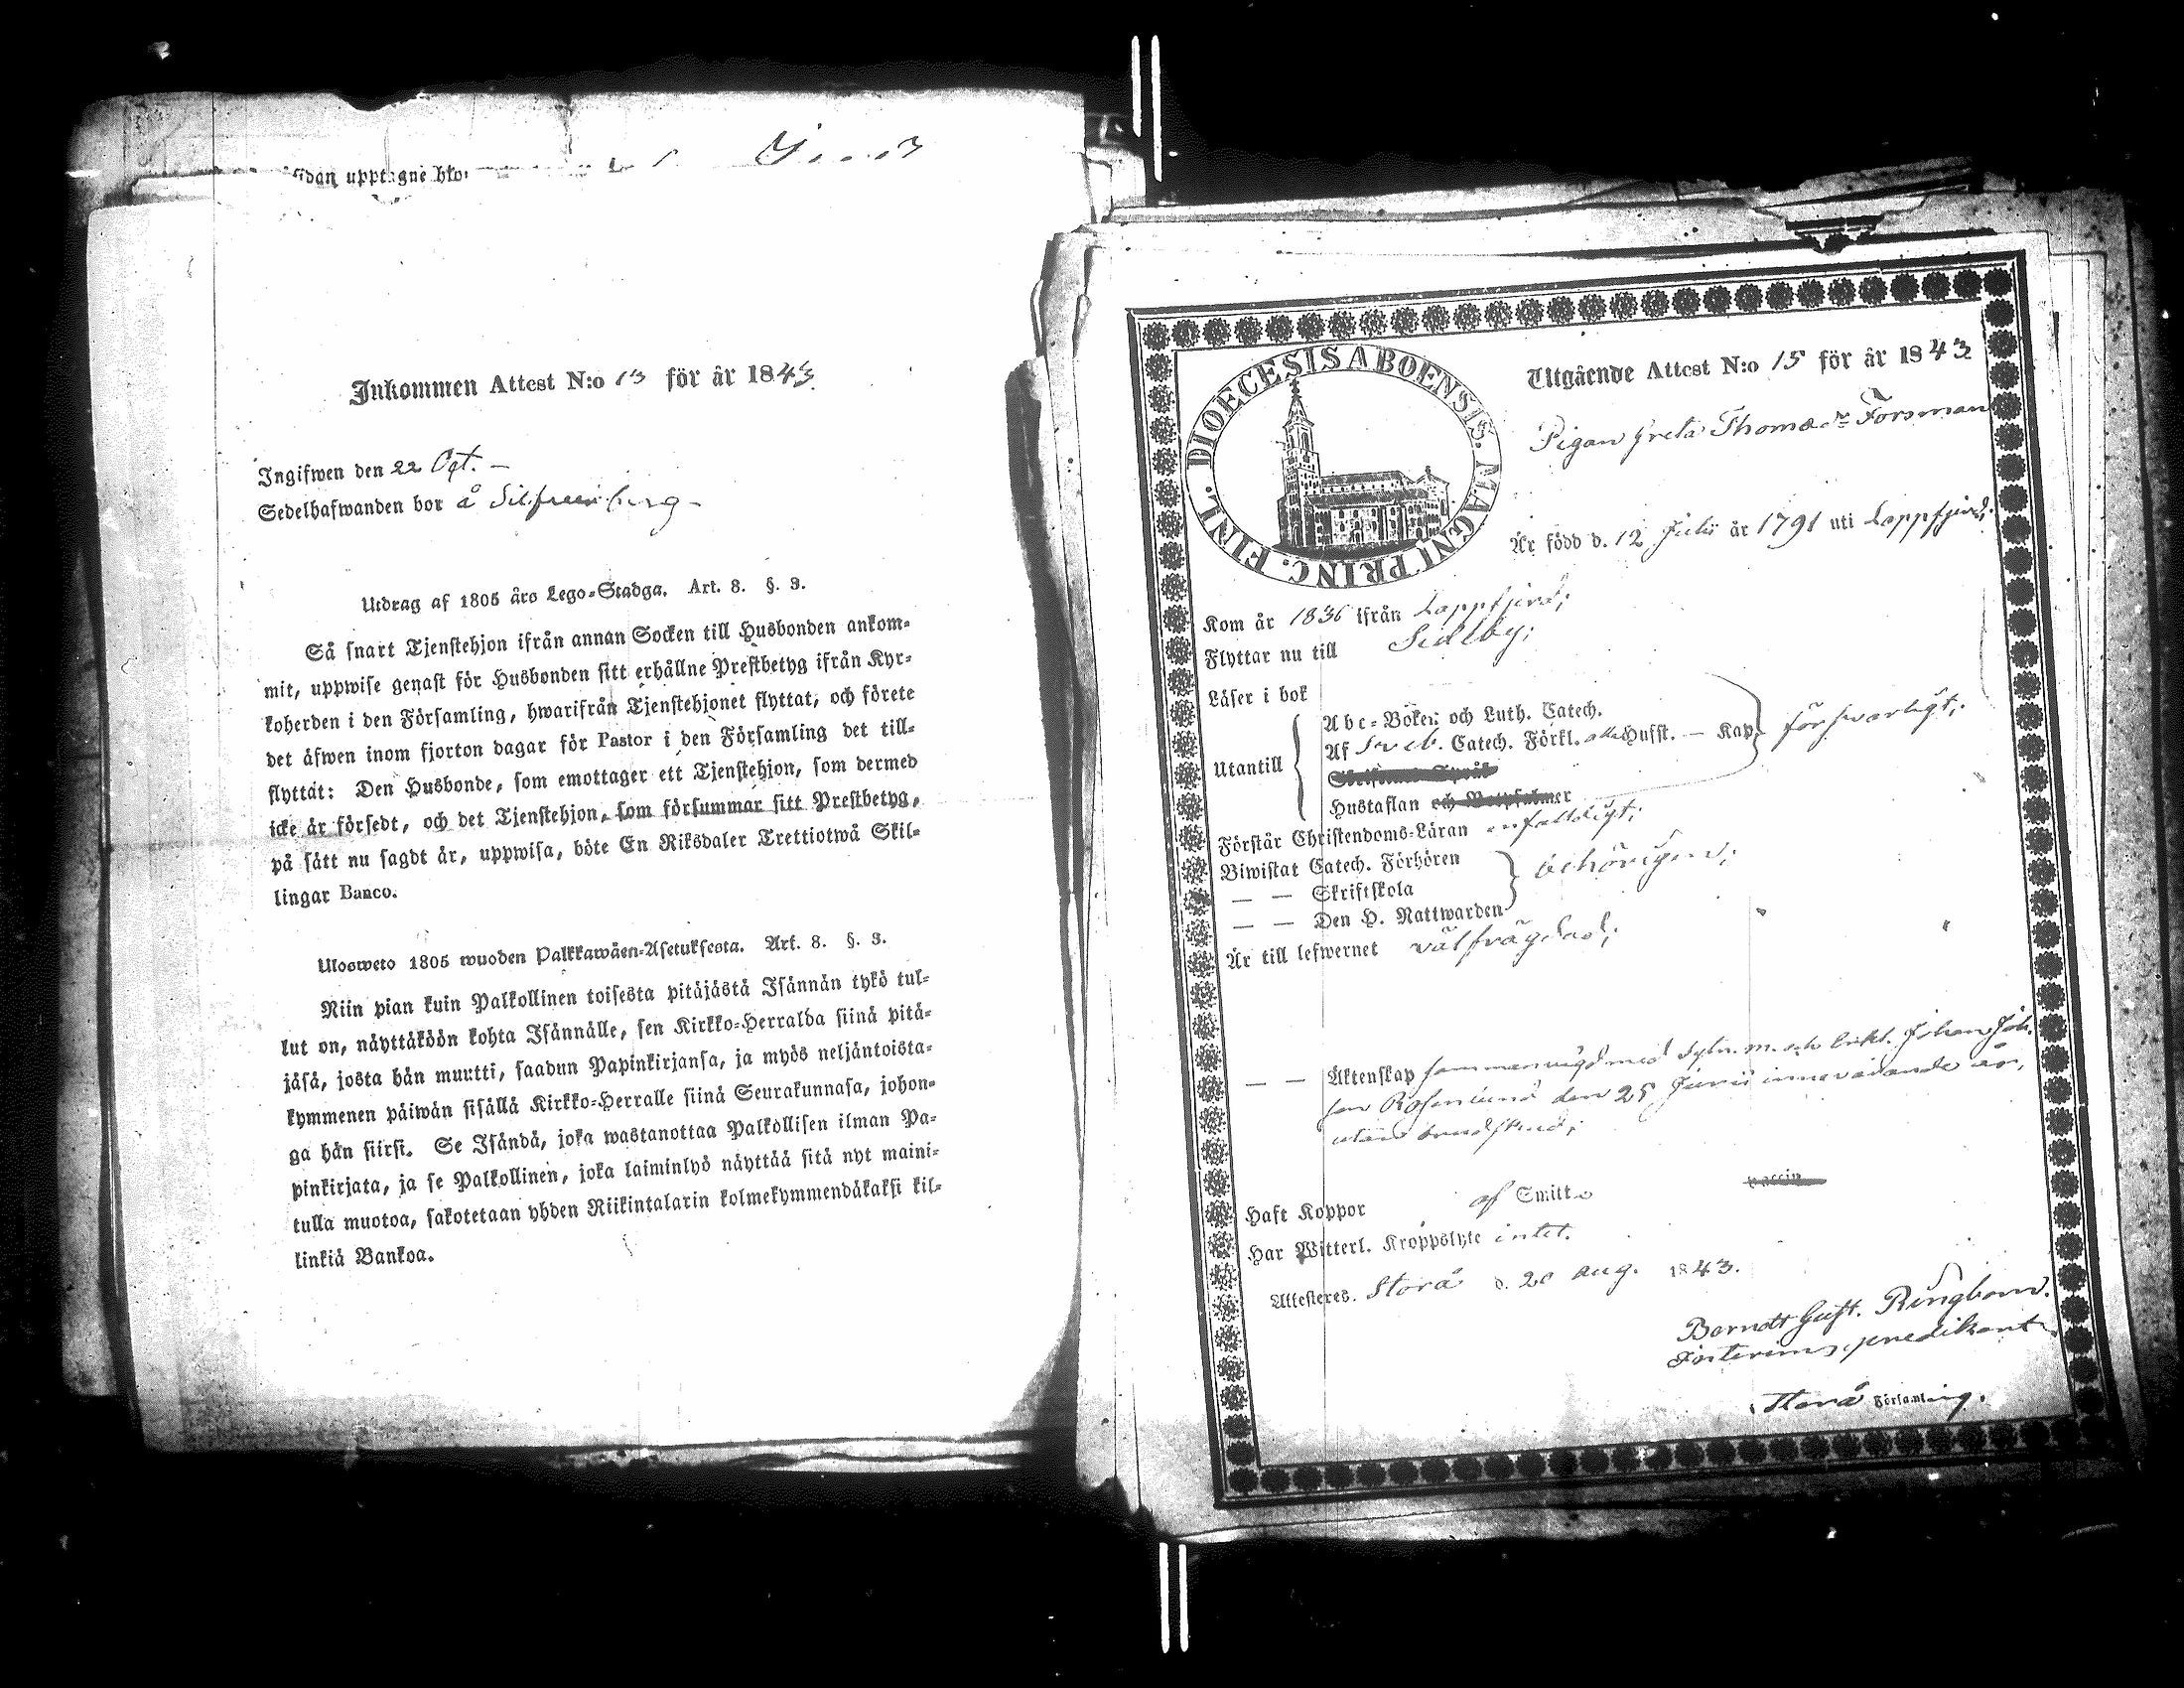 upptagne
Inkommen Attest N:o 13 för år 1843.
Ingifwen den 22 Oct. –
Sedelhafwanden bor å Silfverberg –
Utdrag af 1805 års Lego-Stadga. Art. 8. §. 3.
Så snart Tjenstehjon ifrån annan Socken till Husbonden ankom-
mit, uppwise genast för Husbonden sitt erhållne Prestbetyg ifrån Kyr-
koherden i den Församling, hwarifrån Tjenstehjonet flyttat, och förete
det äfwen inom fjorton dagar för Pastor i den Församling det till-
flyttat: Den Husbonde, som emottager ett Tjenstehjon, som dermed
icke är försedt, och det Tjenstehjon, som försummar sitt Prestbetyg,
på sätt nu sagdt är, uppwisa, böte En Riksdaler Trettiotwå Skil-
lingar Banco.
Ulosweto 1805 wuoden Palkkawäen-Asetuksesta. Art. 8. §. 3.
Niin pian kuin Palkollinen toisesta pitäjästä Isännän tykö tul-
lut on, näyttäköön kohta Isännälle, sen Kirkko-Herralda siinä pitä-
jäsä, josta hän muutti, saadun Papinkirjansa, ja myös neljäntoista-
kymmenen päiwän sisällä Kirkko-Herralle siinä Seurakunnasa, johon-
ga hän siirsi. Se Isändä, joka wastanottaa Palkollisen ilman Pa-
pinkirjata, ja se Palkollinen, joka laiminlyö näyttää sitä nyt maini-
tulla muotoa, sakotetaan yhden Riikintalarin kolmekymmendäkaksi kil-
linkiä Bankoa.
DIOECESIS ABOENSIS. MAGNI PRINC. FINL.
Utgående Attest N:o 15 för år 1843
Pigan Greta Thomasdr Forsman
Är född d. 12 Julii år 1791 uti Lappfjerd;
Kom år 1836 ifrån Lappfjerd;
Flyttar nu till Sideby;
Läser i bok
Abc-Boken och Luth. Catech.
Utantill Af Sveb. Catech. Förkl. alla Husst. — Kap. försvarligt;
Hustaflan och Botpsalmer
Förstår Christendoms-Läran enfaldigt;
Biwistat Catech. Förhören
— — Skriftskola behörigen;
— — Den H. Nattwarden
Är till lefwernet välfrägdad;
— — Äktenskap sammanvigd med Sytn. m. och Enkl. Johan Joh.
son Rosenlund den 25 Junii innevarande år,
utan
Haft Koppor af Smitta vaccin
Har Witterl. Kroppslyte intet.
Attesteres. Storå d. 20 Aug. 1843.
Berndt Gust. Ringbom.
Interims predikant
Storå Församling.